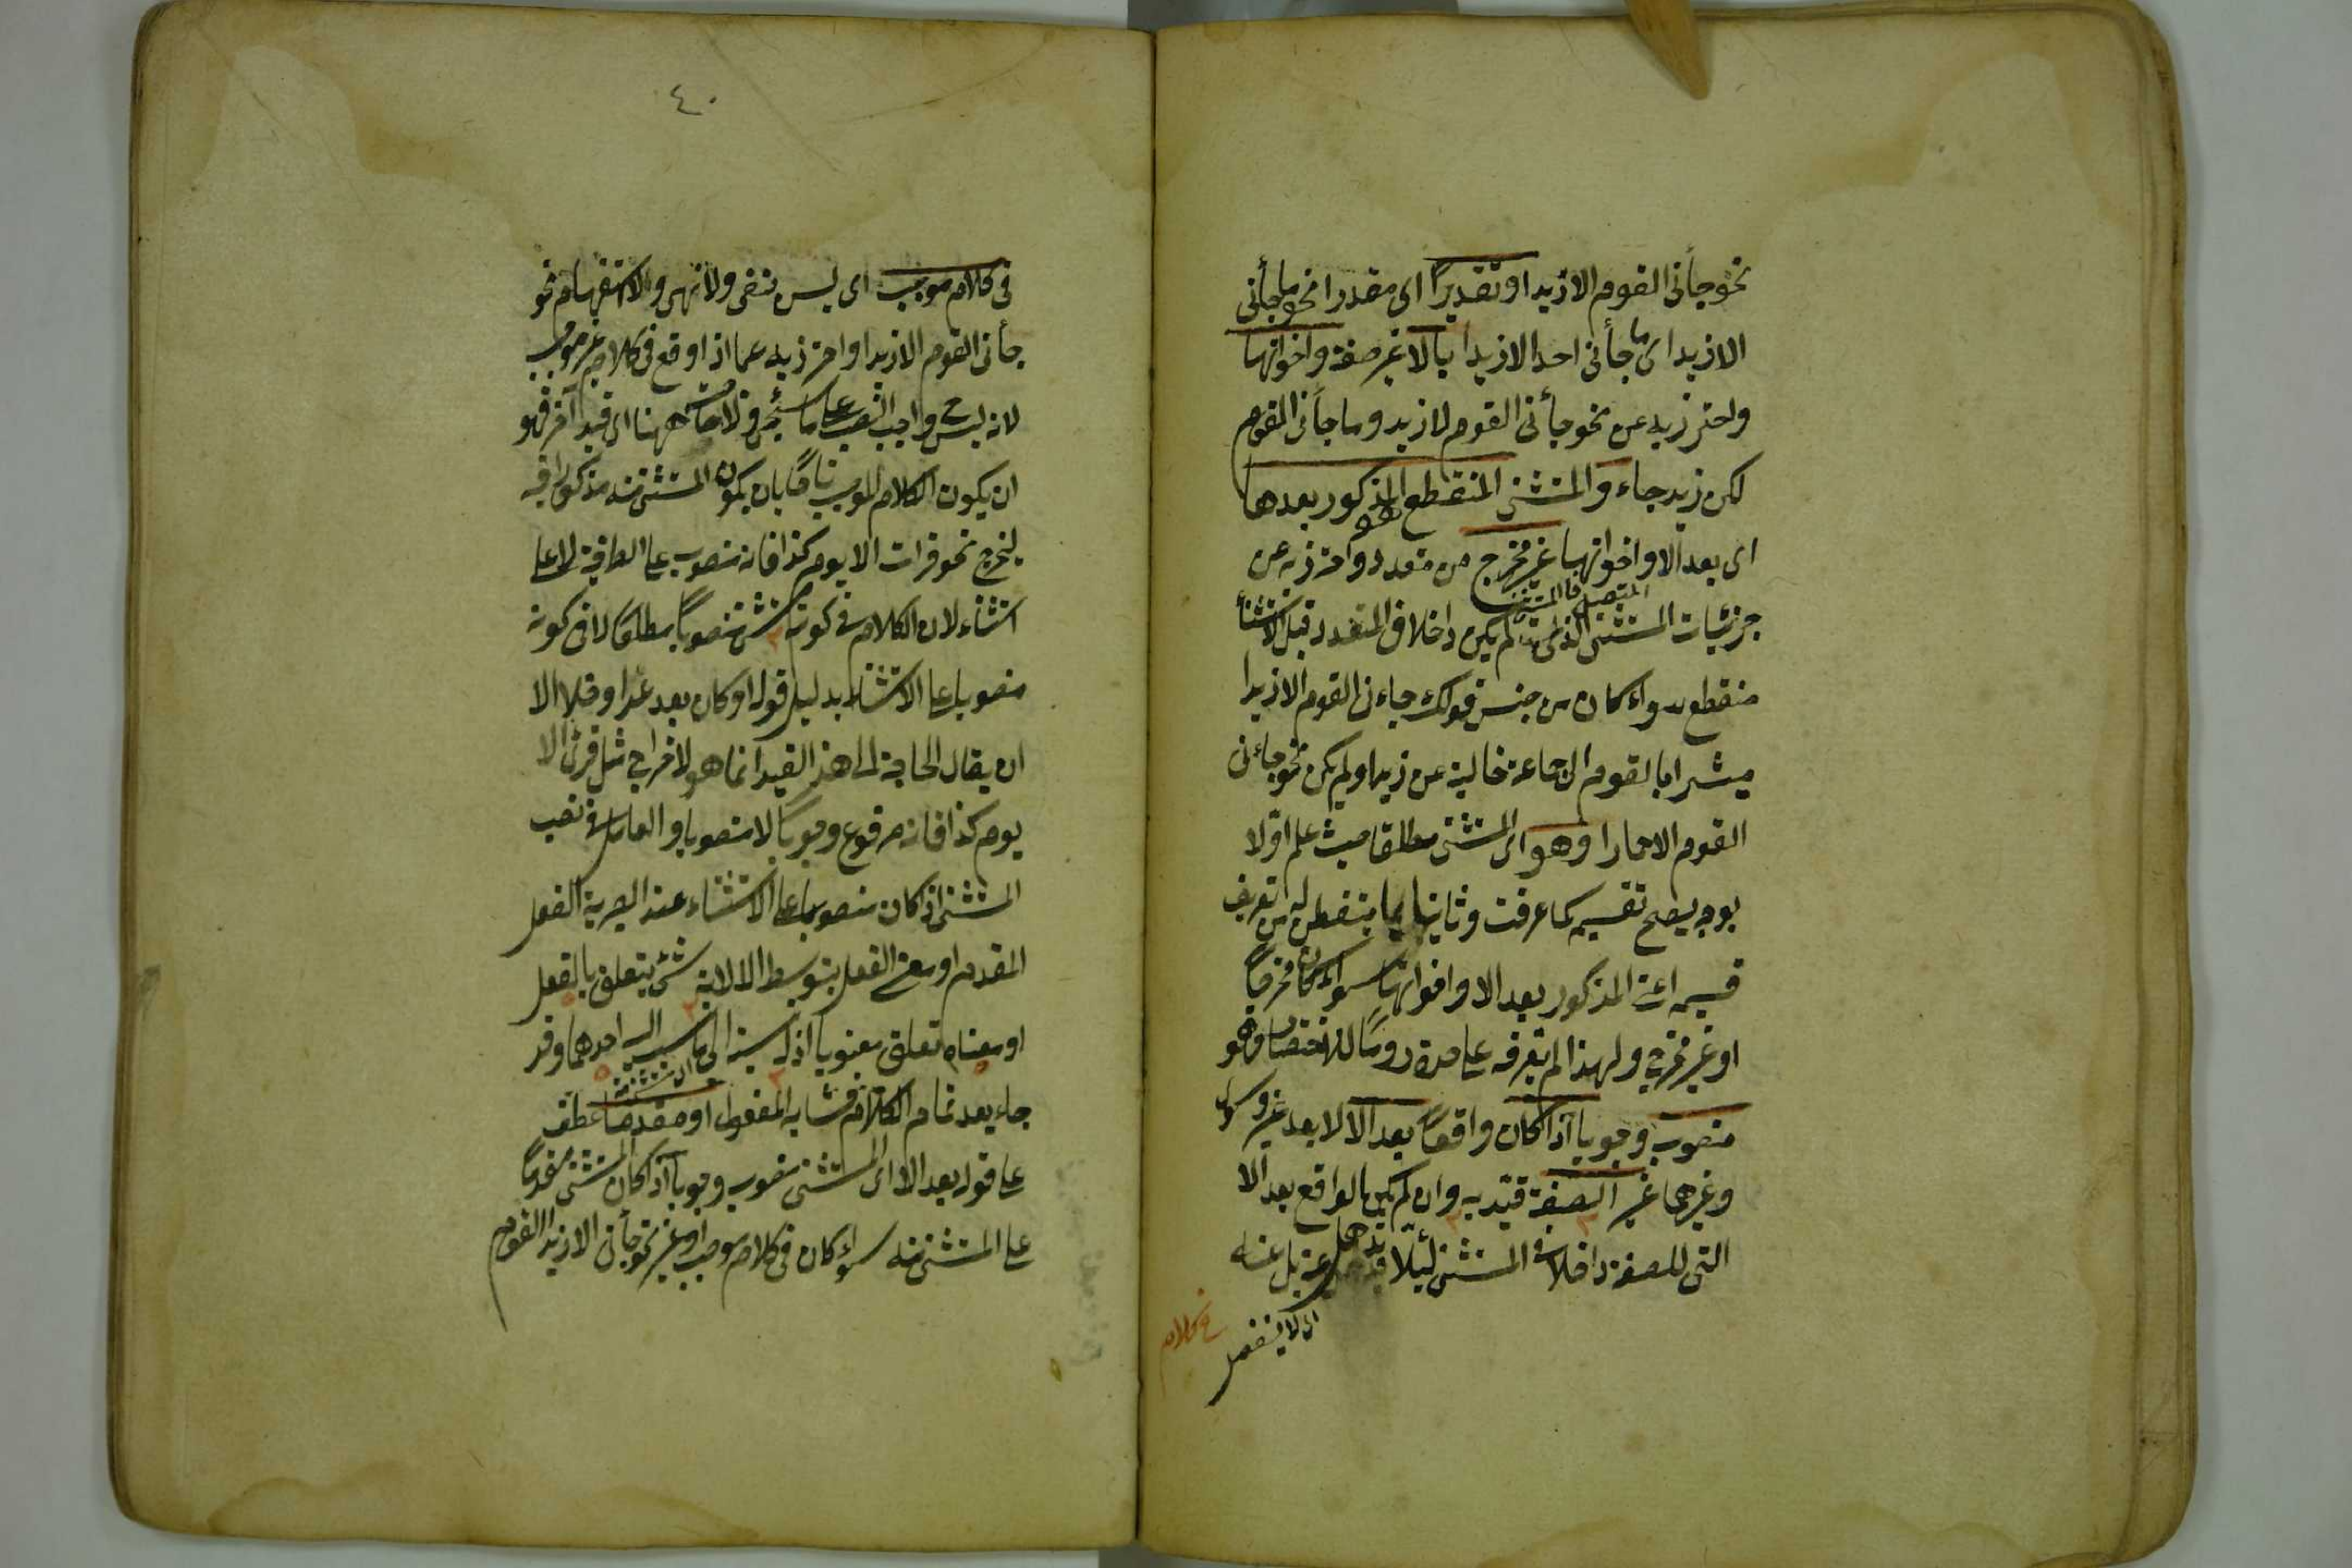 نحو جأنى القوم الا زيدا او تقديرًا اى مقدرا نحو ما جأنى
الا زيدا اى ما جأنى احد الا زيدا بالا غير صفة واخواتها
واحترز به عن نحو جأنى القوم لا زيد وما جأنى القوم
لكن زيد جاء والمستثنى المنقطع هو المذكور بعدها
اى بعد الا واخواتها غير مخرج من متعدد واحترز به عن
جزئيات المستثنى المتصل فالمستثنى الذى لم يكن داخلا فى المتعدد قبل الاستثنأ
منقطع سواء كان من جنسه كقولك جاءنى القوم الا زيدا
مشيرا بالقوم الى جماعة خالية عن زيد او لم يكن نحو جاءنى
القوم الا حمارا وهو اى المستثنى مطلقا حيث علم اوّلا
بوجه يصحح تقسيمه كما عرفت وثانيا بما يتفطن له من تعريف
قسيمه اعنى المذكور بعد الا واخواتها سواء كان مخرجًا
او غير مخرج ولهذا لم يعرفه على حدة رومًا للاختصار وهو
منصوب وجوبا اذا كان واقعًا بعد الا لا بعد غير وسوى
وغيرهما غير الصفة قيّد به وان لم يكن الواقع بعد الا
التى للصفة داخلا فى المستثنى لئلا يذهل عنه بل عنه
اى لا ينفصل
فى كلام
٤٠
فى كلام موجب اى ليس بنفى ولا نهى ولا استفهام نحو
جأنى القوم الا زيدا واحترز به عما اذا وقع فى كلام غير موجب
لانه ليس ح واجب النصب على ما سيجئ ولا حاجة ههنا الى قيد آخر وهو
ان يكون الكلام الموجب تامًا بان يكون المستثنى منه مذكورا فيه
ليخرج نحو قرات الا يوم كذا فانه منصوب على الظرفية لا على
استثناء لان الكلام فى كونه مستثنى منصوبًا مطلقًا لا فى كونه
منصوبا على الاستثناء بدليل قوله او كان بعد خلا وعدا الا
ان يقال الحاجة الى هذا القيد انما هو لاخراج مثل قرئ الا
يوم كذا فانه مرفوع وجوبًا لا منصوبا والعامل فى نصب
المستثنى اذا كان منصوبا على الاستثناء عند البصرية الفعل
المقدم او معنى الفعل بتوسط الا لانه شئ يتعلق بالفعل
او معناه تعلقا معنويا اذ له نسبة الى ما نسب اليه احدهما وقد
جاء بعد تمام الكلام فشابه المفعول او مقدما عطف
على قوله بعد الا اى المستثنى منصوب وجوبا اذا كان المستثنى مقدمًا
على المستثنى منه سواء كان فى كلام موجب او غيره نحو جأنى الا زيدا القوم